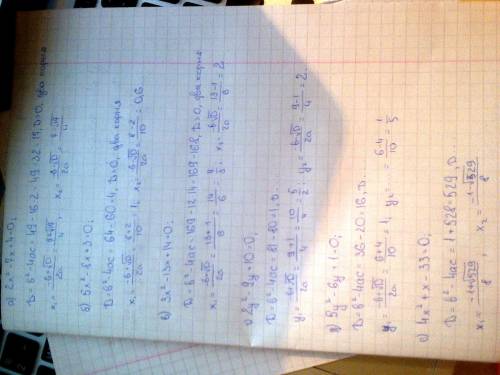 а) 2x²-9x+4=0;
D=b²-4ac=49-16·2=49-32=17, D>0, два корня
x₁=(-b+√D)/2a=(9+√17)/4; x₂=(-b-√D)/2a=(9-√17)/4
б) 5x²-8x+3=0;
D=b²-4ac=64-60=4, D>0, два корня
x₁=(-b+√D)/2a=(8+2)/10=1, x₂=(-b-√D)/2a=(8-2)/10=0,6.
в) 3x²-13x+14=0;
D=b²-4ac=169-12·14=169-168, D>0, два корня
x₁=(-b+√D)/2a=(13+1)/6=14/6, x₂=(-b-√D)/2a=(13-1)/6=2
г) 2y²-9y+10=0;
D=b²-4ac=81-80=1, D...
y₁=(-b+√D)/2a=(9+1)/4=10/4=5/2; y₂=(-b-√D)/2a=(9-1)/4=2.
д) 5y²-6y+1=0;
D=b²-4ac=36-20=16, D...
y₁=(-b+√D)/2a=(6+4)/10=1, y₂=(6-4)/10=1/5
е) 4x²+x-33=0;
D=b²-4ac=1+528=529, D...
x₁=(-1+√529)/8, x₂=(-1-√529)/8